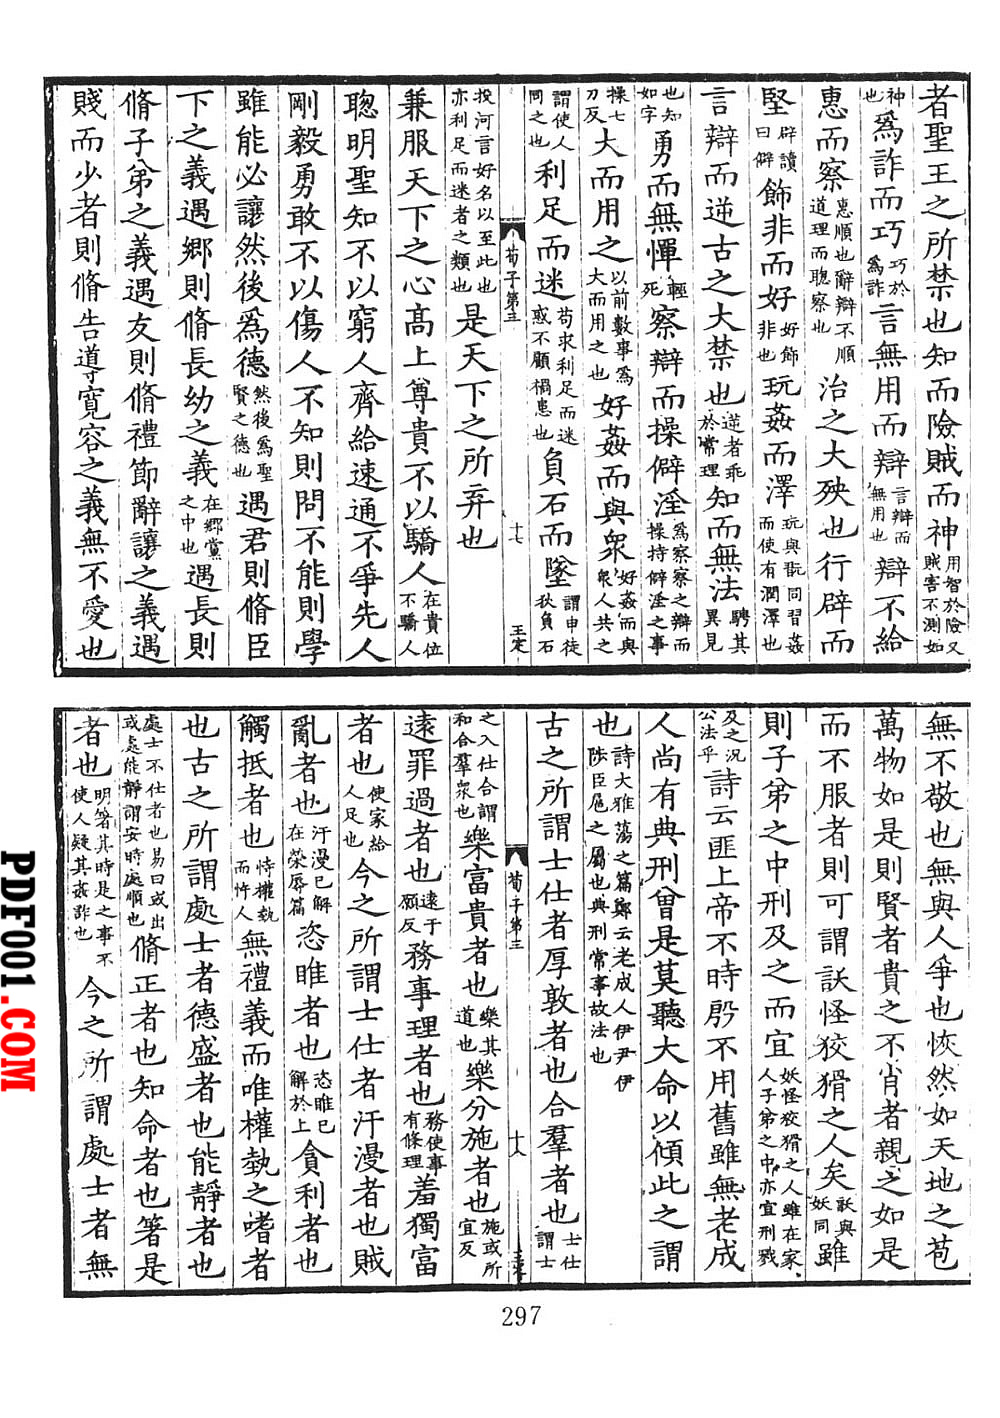 者聖王之所禁也知而險賊而神用智於險又賊害不測如
神也爲詐而巧巧於爲詐言無用而辯言辯而無用也辯不給
惠而察惠順也辭辯不順道理而聰察也治之大殃也行辟而
堅辟讀曰僻飾非而好好飾非也玩姦而澤玩與翫同習姦而使有潤澤也
言辯而逆古之大禁也逆者乖於常理知而無法騁其異見
也知如字勇而無憚輕死察辯而操僻淫爲察察之辯而操持僻淫之事
操七刀反大而用之以前數事爲大而用之也好姦而與衆好姦而與衆人共之
謂使人同之也利足而迷苟求利足而迷惑不顧禍患也負石而墜謂申徒狄負石
投河言好名以至此也亦利足而迷者之類也是天下之所弃也
荀子第三 十七 王定
兼服天下之心高上尊貴不以驕人在貴位不驕人
聰明聖知不以窮人齊給速通不爭先人
剛毅勇敢不以傷人不知則問不能則學
雖能必讓然後爲德然後爲聖賢之德也遇君則脩臣
下之義遇鄉則脩長幼之義在鄉黨之中也遇長則
脩子弟之義遇友則脩禮節辭讓之義遇
賤而少者則脩告導寬容之義無不愛也
無不敬也無與人爭也恢然如天地之苞
萬物如是則賢者貴之不肖者親之如是
而不服者則可謂訞怪狡猾之人矣訞與妖同雖
則子弟之中刑及之而宜妖怪狡猾之人雖在家人子弟之中亦宜刑戮
及之況公法乎詩云匪上帝不時殷不用舊雖無老成
人尚有典刑曾是莫聽大命以傾此之謂
也詩大雅蕩之篇鄭云老成人伊尹伊陟臣扈之屬也典刑常事故法也
古之所謂士仕者厚敦者也合羣者也士仕謂士
荀子第三 十八
之入仕合謂和合羣衆也樂富貴者也樂其道也樂分施者也施或所宜反
遠罪過者也遠于願反務事理者也務使事有條理羞獨富
者也使家給人足也今之所謂士仕者汙漫者也賊
亂者也汙漫已解在榮辱篇恣睢者也恣睢已解於上貪利者也
觸抵者也恃權埶而忤人無禮義而唯權埶之嗜者
也古之所謂處士者德盛者也能靜者也
處士不仕者也易曰或出或處能靜謂安時處順也脩正者也知命者也箸是
者也明箸其時是之事不使人疑其姦詐也今之所謂處士者無
297
PDF001.COM